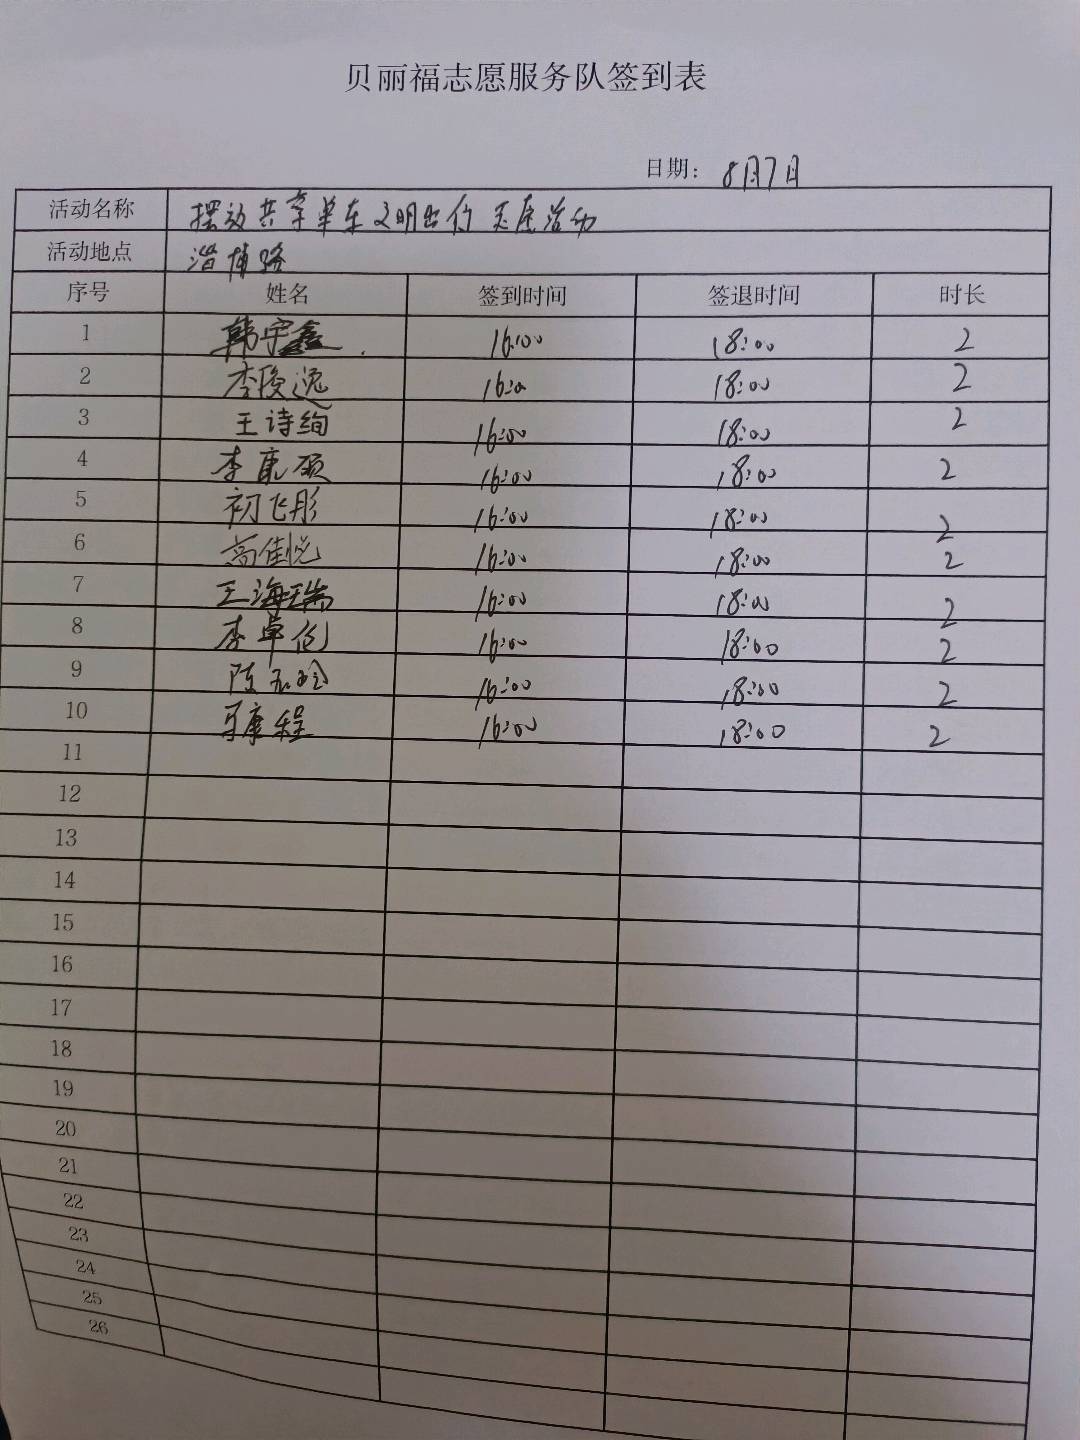 贝丽福志愿服务队签到表
日期： 8月7日
活动名称 摆放共享单车文明出行 活动
活动地点 淄博路
序号 姓名 签到时间 签退时间 时长
1 韩宇鑫 16:00 18:00 2
2 李俊逸 16:0 18:00 2
3 王诗绚 16:00 18:00 2
4 李康硕 16:00 18:00 2
5 初飞彤 16:00 18:00 2
6 高佳悦 16:00 18:00 2
7 王海瑞 16:00 18:00 2
8 李卓 16:00 18:00 2
9 陈 16:00 18:00 2
10 康程 16:00 18:00 2
11
12
13
14
15
16
17
18
19
20
21
22
23
24
25
26